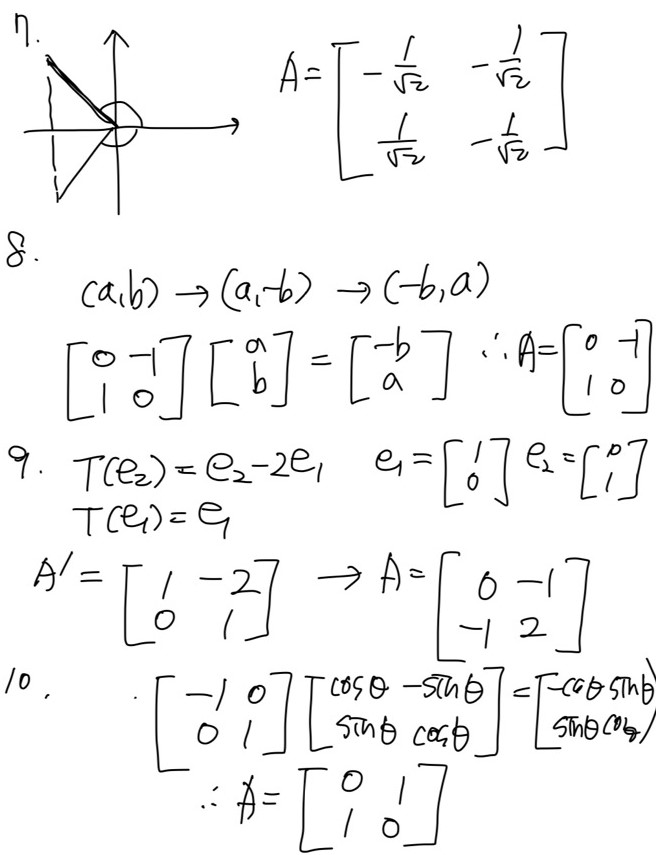 7.
A = [ -1/√2 -1/√2
1/√2 -1/√2 ]
8.
(a,b) → (a,-b) → (-b,a)
[ 0 -1
1 0 ] [ a
b ] = [ -b
a ] ∴ A = [ 0 -1
1 0 ]
9. T(e₂) = e₂ - 2e₁ e₁ = [ 1
0 ] e₂ = [ 0
1 ]
T(e₁) = e₁
A' = [ 1 -2
0 1 ] → A = [ 0 -1
-1 2 ]
10. [ -1 0
0 1 ] [ cosθ -sinθ
sinθ cosθ ] = [ -cosθ sinθ
sinθ cosθ ]
∴ A = [ 0 1
1 0 ]